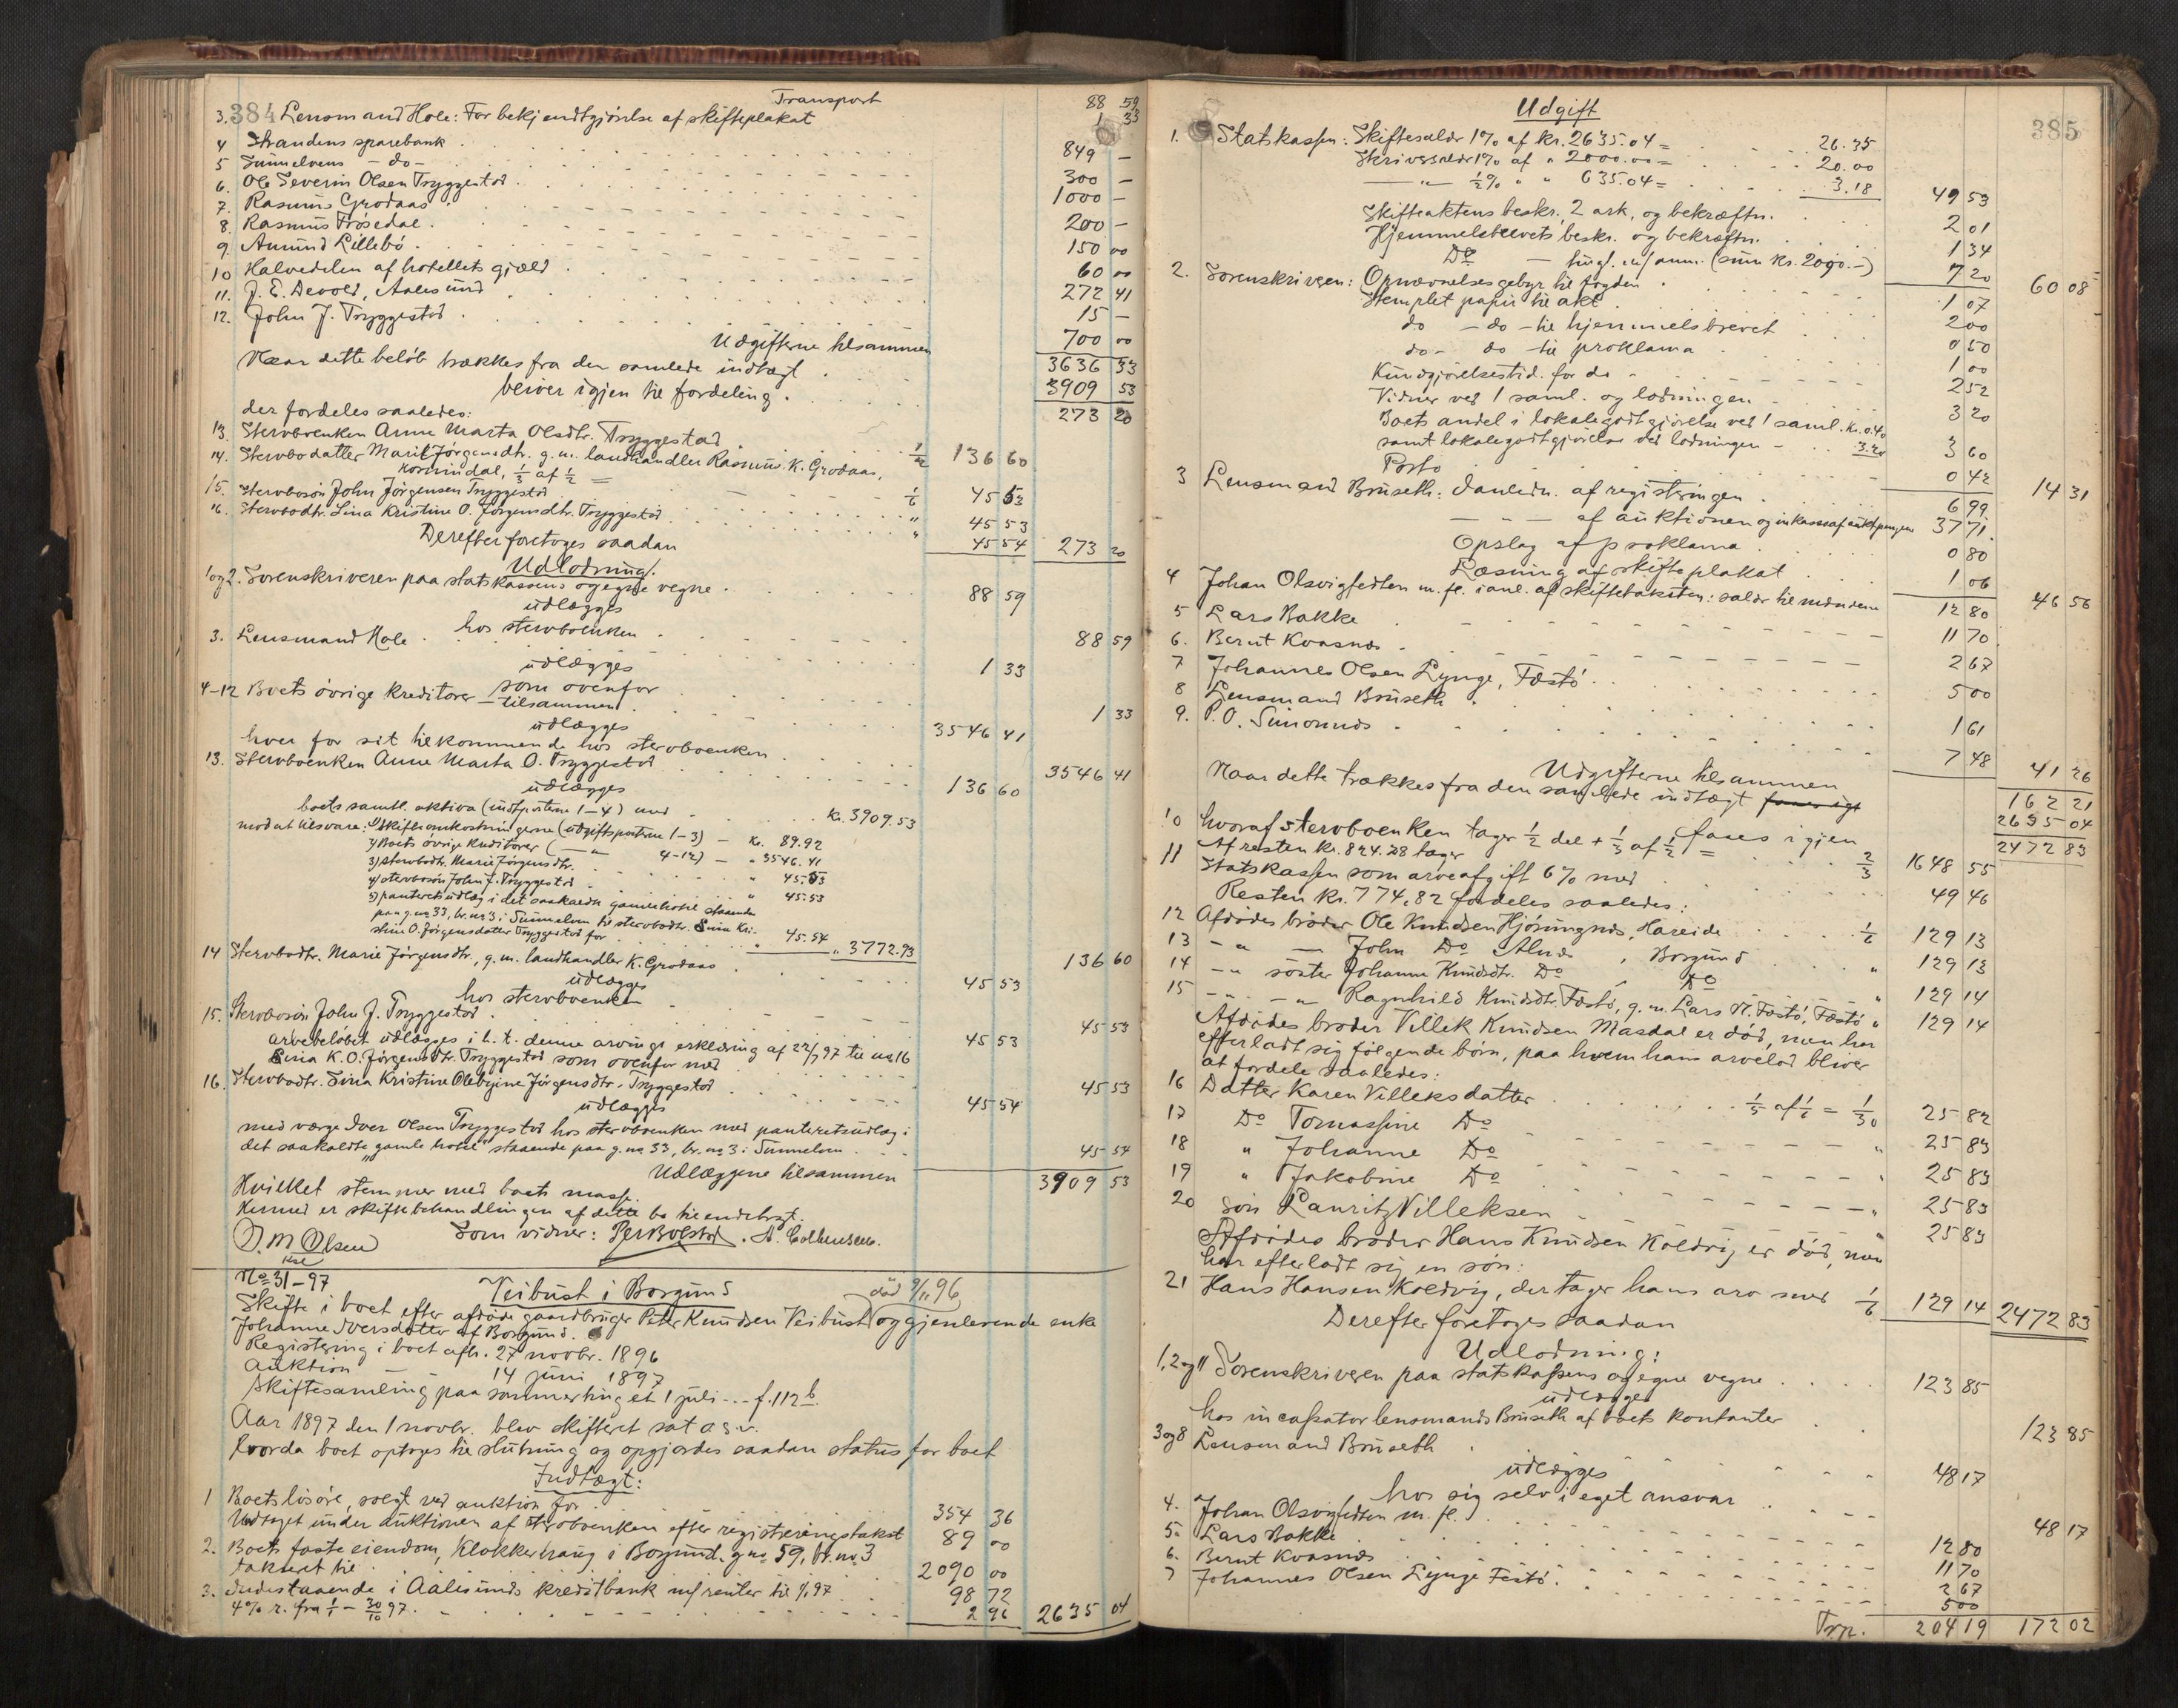 384
Transport 88 59
3. Lensmand Hole: For bekjendtgjörelse af skifteplakat 1 33
4 Strandens sparebank 849 —
5 Sunnelvens — do — 300 —
6. Ole Severin Olsen Tryggestad 1000 —
7. Rasmus Grodaas 200 —
8. Rasmus Frøsedal 150 00
9. Amund Lillebö 60 00
10 Halvedelen af hotellets gjæld 272 41
11. J. E. Devold, Aalesund 15 —
12. John J. Tryggestad 700 00
Udgifterne tilsammen 3636 33
Naar dette belöb trækkes fra den samlede indtægt 3909 53
bliver igjen til fordeling 273 20
der fordeles saaledes:
13. Sterboenken Anne Marta Olsdtr. Tryggestad 1/2 136 60
14. Sterbodatter Marit Jörgensdtr. g. m. landhandler Rasmus K. Grodaas,
Hornindal, 1/3 af 1/2 = 1/6 45 53
15. Sterbosön John Jörgensen Tryggestad " 45 53
16. Sterbodtr. Lina Kristine O. Jörgensdtr. Tryggestad " 45 54 273 20
Derefter foretoges saadan
Udlodning:
1 og 2. Sorenskriveren paa statskassens og egne vegne 88 59
udlægges
hos sterboenken 88 59
3. Lensmand Hole 1 33
udlægges
som ovenfor 1 33
4–12 Boets övrige kreditorer — tilsammen 3546 41
udlægges
hver for sit tilkommende hos sterboenken 3546 41
13. Sterboenken Anne Marta O. Tryggestad 136 60
udlægges
boets samtl. aktiva (indtpostene 1–4) med kr. 3909.53
mod at tilsvare: 1) Skifteomkostningerne (udgiftsposterne 1–3) — kr. 89.92
2) Boets övrige kreditorer ( — " — 4–12) — " 3546.41
3) sterbodtr. Marie Jörgensdtr. " 45.53
4) sterbosön John J. Tryggestad " 45.53
5) panteretsudlæg i det saakaldte gamle hotel staaende
paa g. no 33, br. no 3 i Sunnelven til sterbodtr. Lina Kri-
stine O. Jörgensdatter Tryggestad for " 45.54 " 3772.93
136 60
14 Sterbodtr. Marie Jörgensdtr., g. m. landhandler K. Grodaas 45 53
udlægges
hos sterboenken 45 53
15. Sterbosön John J. Tryggestad 45 53
arvebelöbet udlægges i h. t. denne arvings erklæring af 22/7 97 til no 16
Lina K. O. Jörgensdtr. Tryggestad som ovenfor med 45 53
16. Sterbodtr. Lina Kristine Jörgensdtr. Tryggestad 45 54
udlægges
med værge Iver Olsen Tryggestad hos sterboenken med panteretsudlæg i
det saakaldte "gamle hotel" staaende paa g. no 33, br. no 3 i Sunnelven 45 54
Udlæggene tilsammen 3909 53
Hvilket stemmer med boets masse.
Hermed er skiftebehandlingen af dette bo tilendebragt.
O. M Olsen
kst
Som vidner: Per Bolstad. A.
No 31–97
Veibust i Borgund död 9/11 96
Skifte i boet efter afdöde gaardbruger Peter Knudsen Veibust og gjenlevende enke
Johanne Iversdatter af Borgund.
Registering i boet afh. 27 novbr. 1896
Auktion — 14 juni 1897
Skiftesamling paa sommertinget 1 juli — f. 112 b.
Aar 1897 den 1 novbr. blev skifteret sat o. s. v.
hvorda boet optoges til slutning og opgjordes saadan status for boet
Indtægt:
1 Boets lösöre, solgt ved auktion for 354 36
Udtaget under auktionen af sterboenken efter registreringstakst 89 00
2. Boets faste eiendom, Klokkerhaug i Borgund. g. no 59, br. no 3
takseret til 2090 00
3. Indestaaende i Aalesunds kreditbank m/ renter til 1/1 97 98 72
4% r. fra 1/1 – 30/10 97. 2 96 2635 04
385
Udgift
1. Statskassen: Skiftesalær 1% af kr. 2635.04 = 26.35
Skriversalær 1% af " 2000.00 = 20.00
— " — 1/2% " " 635.04 = 3.18 49 53
Skifteaktens beskr., 2 ark, og bekræftn. 2 01
Hjemmelsbrevets beskr. og bekræftn. 1 34
Do — tingl. m/ ann. (sum kr. 2090.—) 7 20 60 08
2. Sorenskriveren: Opnævnelsesgebyr til fogden 1 07
Stemplet papir til akt 2 00
do — do — til hjemmelsbrevet 0 50
do — do til proklama 1 00
Kundgjörelsestid. for do 2 52
Vidner ved 1 saml. og lodningen 3 20
Boets andel i lokalegodtgjörelse ved 1 saml. kr. 0.40
samt lokalegodtgjörelse ved lodningen — 3.20 3 60
Porto 0 42 14 31
3 Lensmand Bruseth: Anledn. af registeringen 6 99
— " — af auktionen og inkasso af auktpengene 37 71
Opslag af proklama 0 80
Læsning af skifteplakat 1 06 46 56
4 Johan Olsvigfedten m. fl. i anl. af skiftetaksten: salær til mændene 12 80
5 Lars Bakke 11 70
6. Bernt Kvasnæs 2 67
7 Johannes Olsen Lynge, Festö 5 00
8 Lensmand Bruseth 1 61
9. P. O. Simonnæs 7 48 41 26
Udgifterne tilsammen 162 21
Naar dette trækkes fra den samlede indtægt 2635 04
faaes igjen 2472 83
10 hvoraf sterboenken tager 1/2 del + 1/3 af 1/2 = 2/3 1648 55
Af resten kr. 824.28 tager
11 Statskassen som arveafgift 6% med 49 46
Resten kr. 774,82 fordeles saaledes:
12 Afdödes broder Ole Knudsen Hjörungnæs, Hareide 1/6 129 13
13 — " — John Do Alnæs, Borgund " 129 13
14 — " söster Johanne Knudsdtr. Do, Do " 129 14
15 — " — " Ragnhild Knudsdtr. Festö, g. m. Lars N. Festö, Festö " 129 14
Afdödes broder Villek Knudsen Masdal er död, men har
efterladt sig följende börn, paa hvem hans arvelod bliver
at fordele saaledes:
16 Datter Karen Villeksdatter 1/5 af 1/6 = 1/30 25 82
17 Do Tomassine Do " 25 83
18 " Johanne Do " 25 83
19 " Jakobine Do " 25 83
20 Sön Lauritz Villeksen " 25 83
Afdödes broder Hans Knudsen Koldvig er död, men
har efterladt sig en sön:
21 Hans Hansen Koldvig, der tager hans arv med 1/6 129 14 2472 83
Derefter foretoges saadan
Udlodning:
1, 2 og 11 Sorenskriveren paa statskassens og egne vegne 123 85
udlægges
hos incassator lensmand Bruseth af boets kontanter 123 85
3 og 8 Lensmand Bruseth 48 17
udlægges
hos sig selv i eget ansvar 48 17
4. Johan Olsvigfedten m. fl. 12 80
5. Lars Bakke 11 70
6. Bernt Kvasnæs 2 67
7 Johannes Olsen Lynge Festö. 5 00
Trp. 204 19 172 02